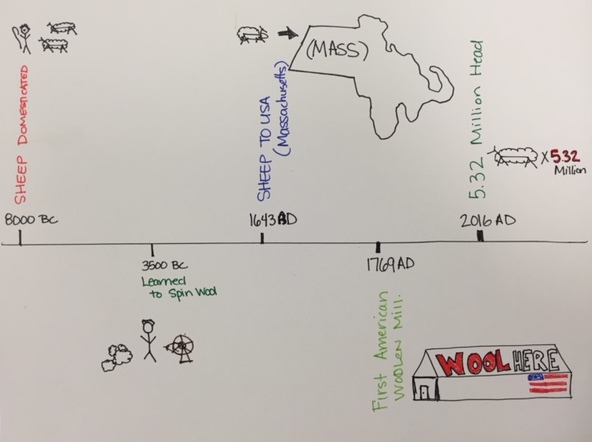 SHEEP DOMESTICATED
8000 BC
3500 BC
Learned
to Spin Wool
SHEEP TO USA
(Massachusetts)
(MASS)
1643 AD
1769 AD
First American
Woolen Mill.
WOOL HERE
5.32 Million Head
X 5.32
Million
2016 AD